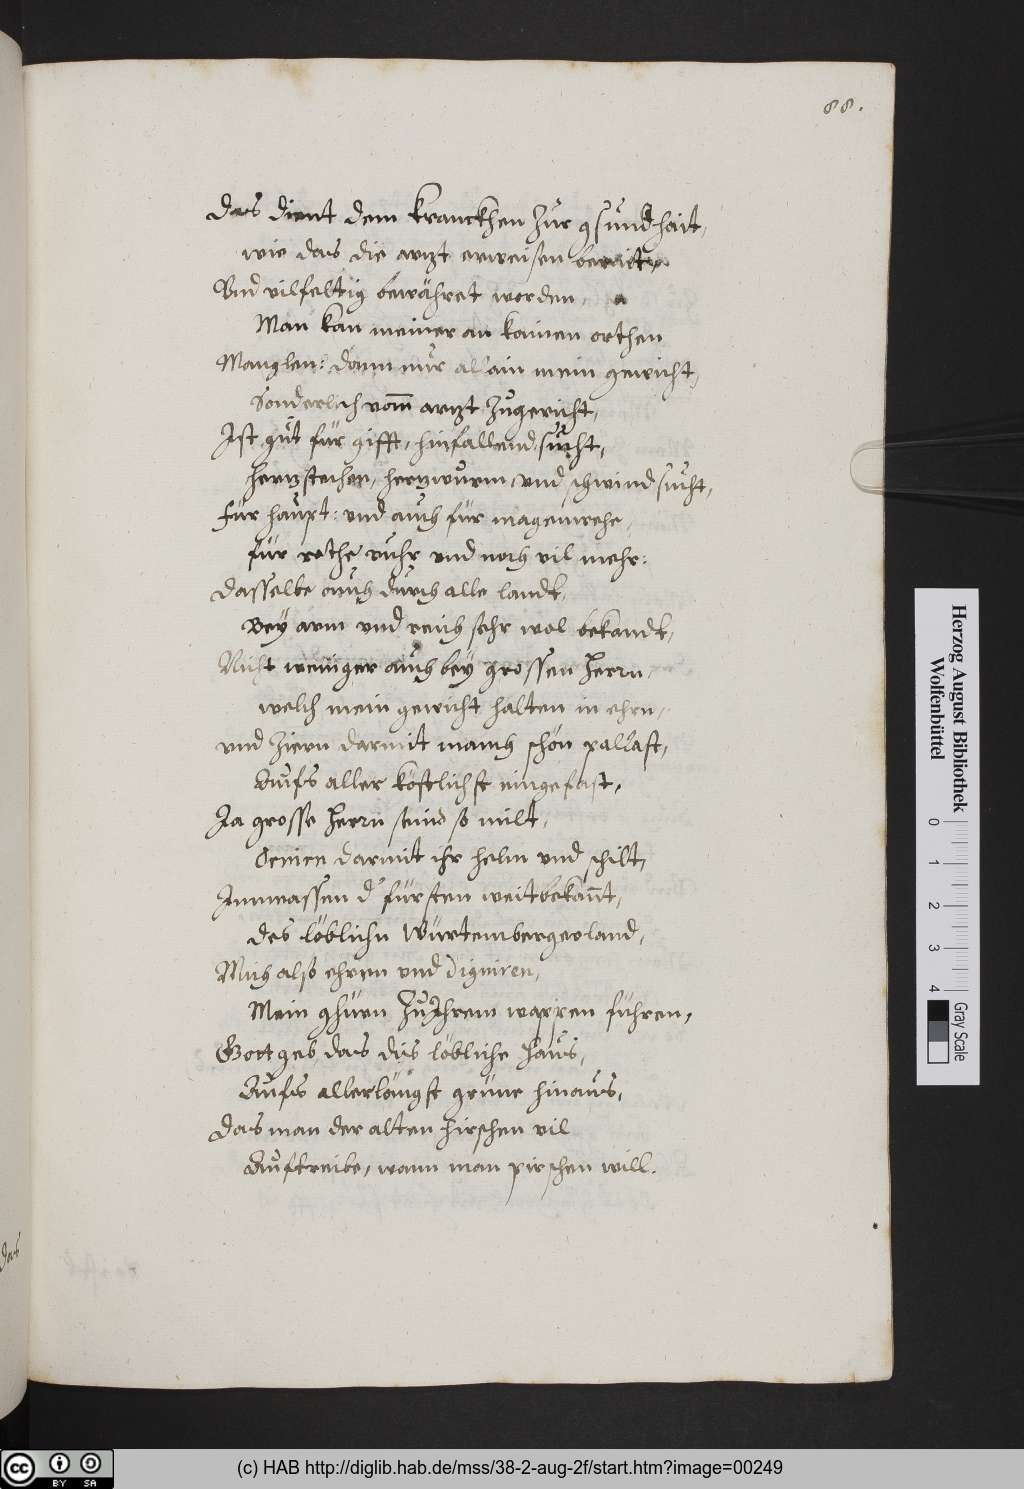 88.
Das dient dem kranckhen zur gsundhait,
wie das die artzt erweisen beraitt,
Vnd vilfeltig bewähret worden,
Man kan meiner an kainen orthen
Manglen: dann nur allain mein gewicht,
Sonderlich vom artzt zugericht,
Ist gut für gifft, hinfallend sucht,
Hertzstechen, hertzwurm, vnd schwindsucht,
Für haupt: vnd auch für magenwehe,
für rothe ruhr vnd noch vil mehr:
Dasselbe auch durch alle landt,
Bey arm vnd reich sehr wol bekandt,
Nicht weniger auch bey grossen Herrn,
welch mein gewicht halten in ehrn,
vnd ziern darmit manch schön pallast,
Aufs aller köstlichst eingefast,
Ja grosse Herrn seind so milt,
Zenien darmit ihr helm vnd schilt,
Inmassen d' fürsten weitbekannt,
des löblichn Würtembergerland,
Mich also ehren vnd digniren,
Mein ghürn zu Ihrem wappen führen,
Gott geb das dis löbliche Haus,
Aufs allerlängst grüne hinaus,
Das man der alten Hirschen vil
Auftreibe, wann man pirschen will.
das
Herzog August Bibliothek
Wolfenbüttel
0 1 2 3 4
Gray Scale
cc BY SA
(c) HAB http://diglib.hab.de/mss/38-2-aug-2f/start.htm?image=00249